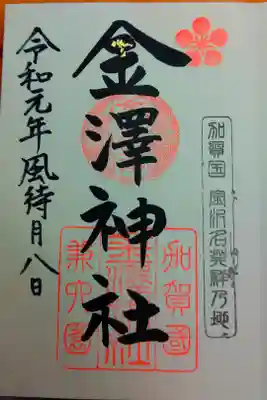 加賀国 金沢名発祥乃地
金澤神社
加賀國
金澤神社
兼六園
令和元年風待月八日